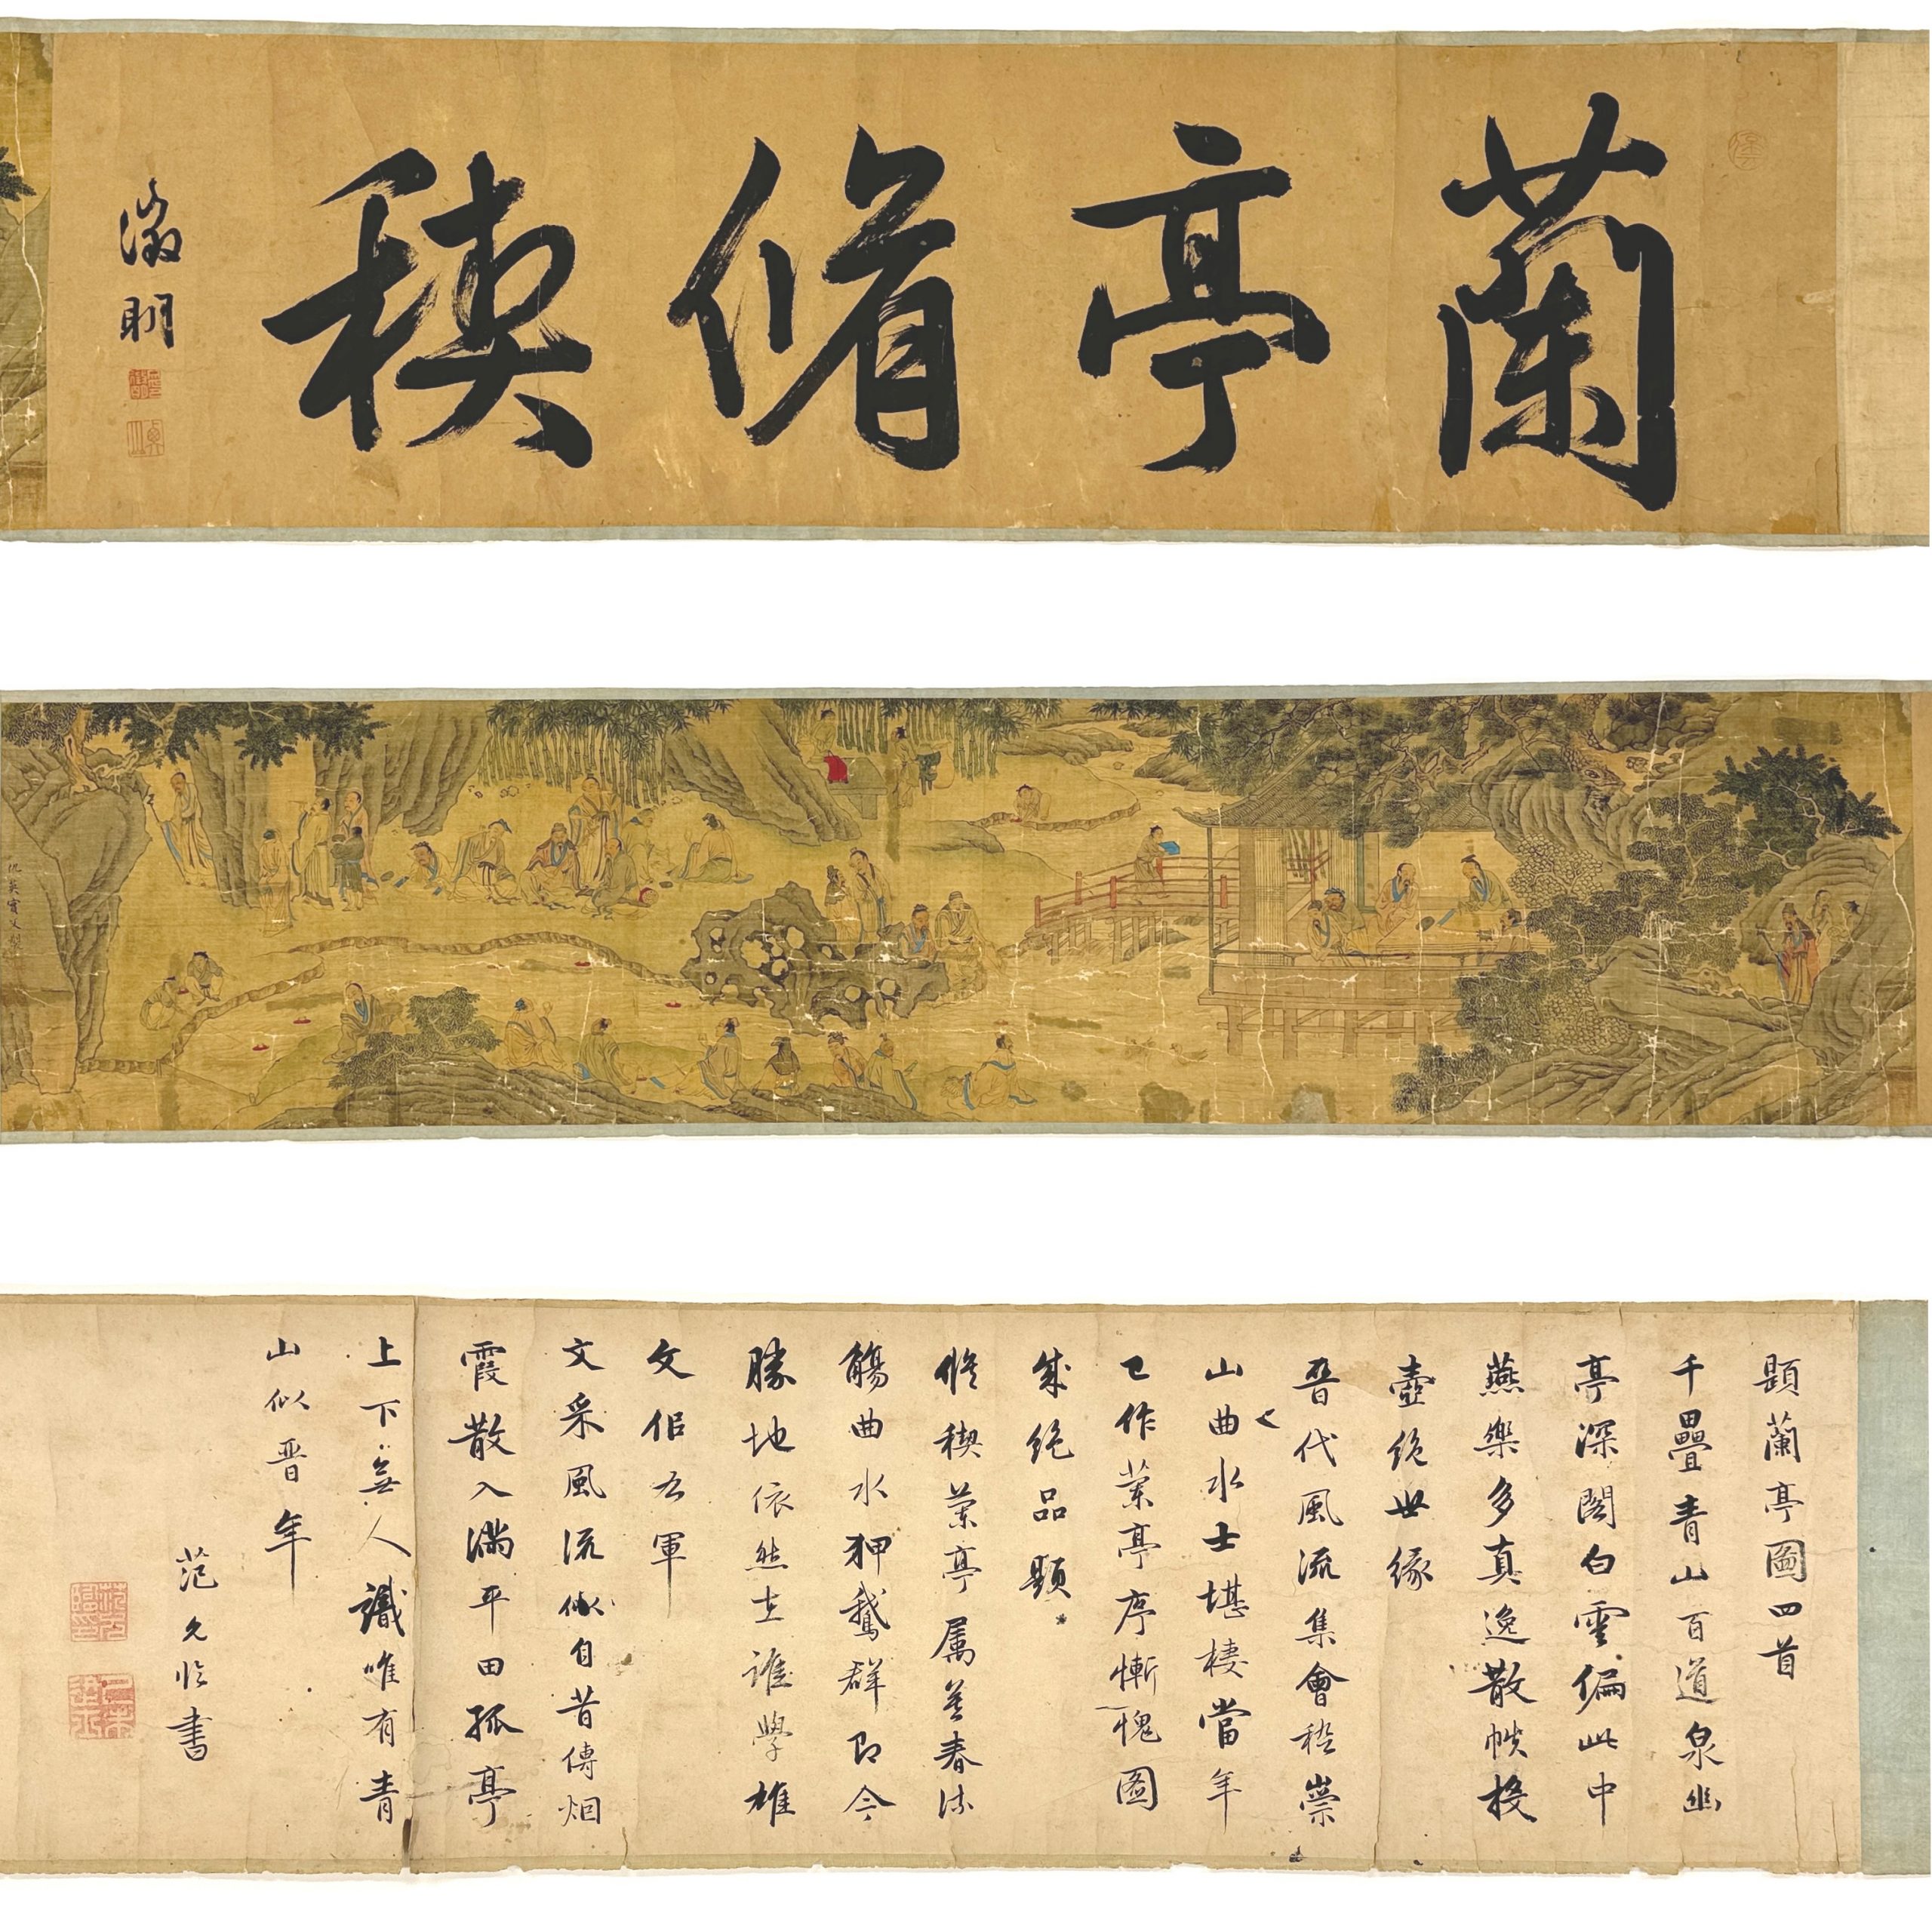 蘭亭脩稧
徵明
仇英實父製
題蘭亭圖四首
千疊青山百道泉幽
亭深閣白雲偏此中
燕樂多真逸散帙投
壺絕世緣
晉代風流集會稽崇
山曲水士堪棲當年
已作蘭亭序慚愧圖
成絕品題
脩稧蘭亭屬暮春流
觴曲水狎鵝群即今
勝地依然在誰學雄
文佀右軍
文采風流似自昔傳烟
霞散入滿平田孤亭
上下無人識唯有青
山似晉年
范允臨書
范允臨印
乙未進士